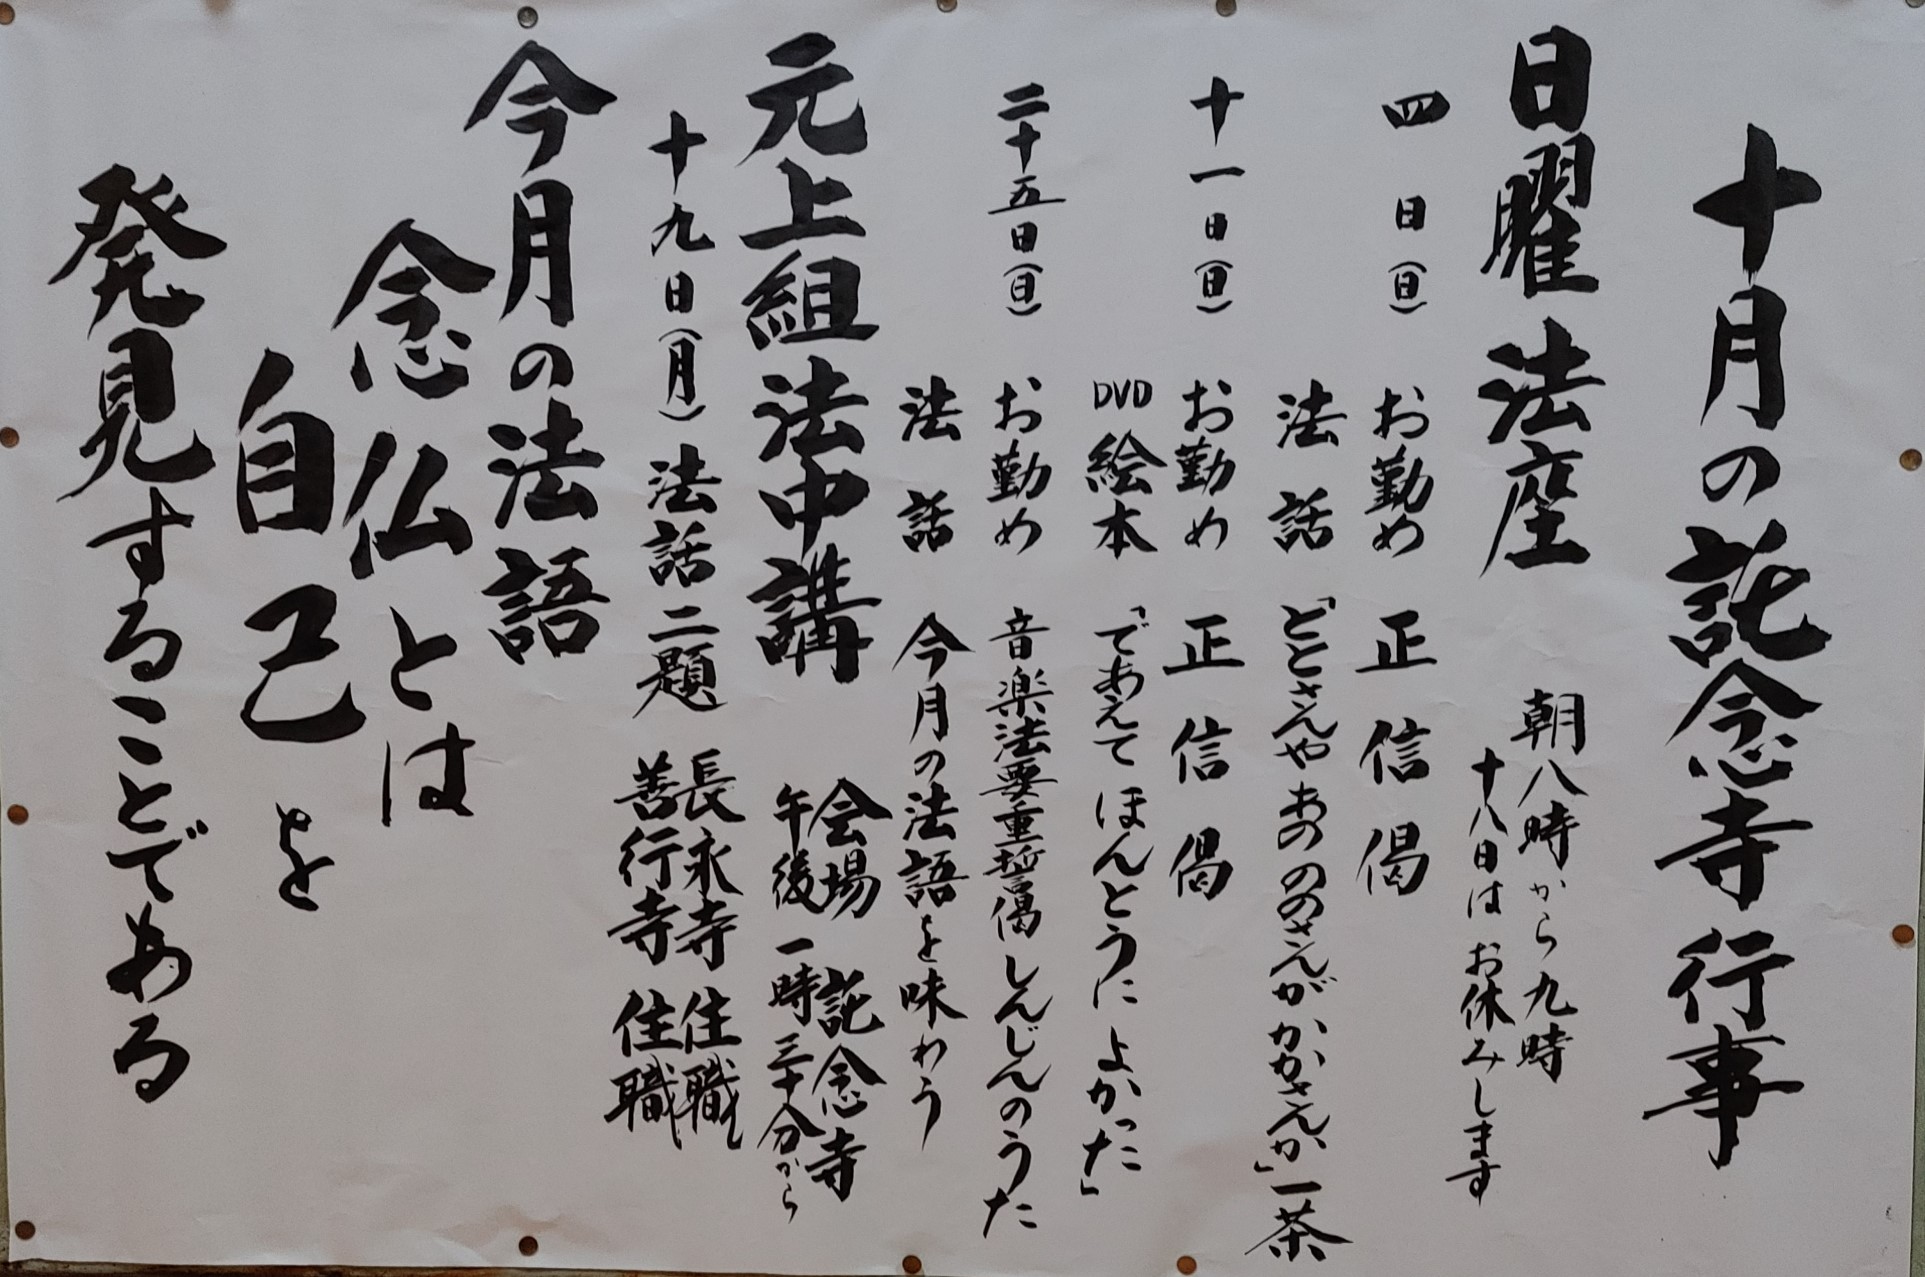 十月の託念寺行事
日曜法座
朝八時から九時
十八日はお休みします
四日(日)
お勤め 正信偈
法話 「ととさんやあのののさんがかかさんか」一茶
十一日(日)
お勤め 正信偈
DVD絵本 「であえてほんとうによかった」
二十五日(日)
お勤め 音楽法要重誓偈しんじんのうた
法話 今月の法語を味わう
元上組法中講
会場 託念寺
午後一時三十分から
十九日(月) 法話二題
長永寺住職
善行寺住職
今月の法語
念仏とは
自己を
発見することである